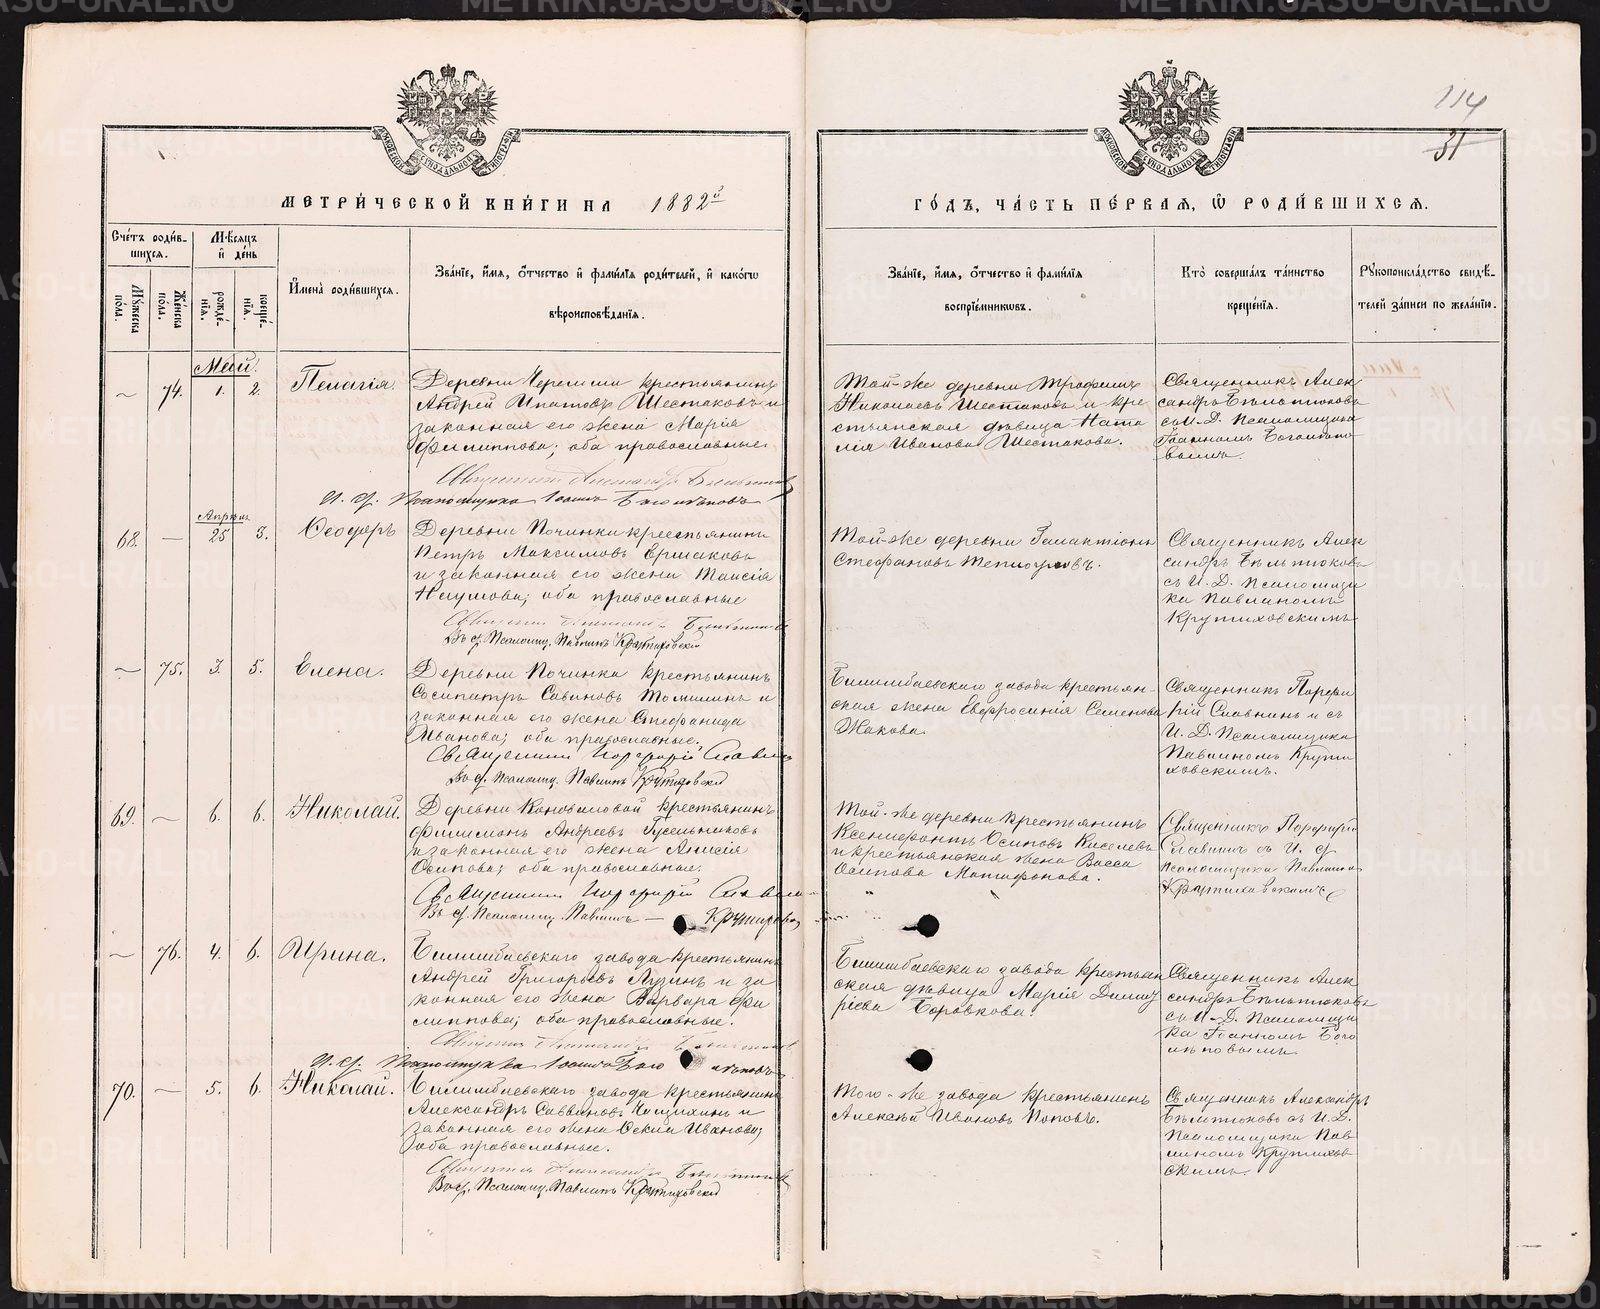 114
31
МЕТРИ́ЧЕСКОЙ КНИ́ГИ НА 1882й
ГО́ДЪ, ЧА́СТЬ ПЕ́РВАЯ, Ѡ РОДИ́ВШИХСЯ.
Сче́тъ роди́вшихся.
Мꙋжеска по́ла.
Же́нска по́ла.
Мѣ́сяцъ и҆ де́нь
рожде́нїя.
креще́нїя.
И҆мена̀ роди́вшихся.
Зва́нїе, и҆́мя, ѻ҆́тчество и҆ фами́лїя роди́телей, и҆ како́гѡ
вѣроисповѣ́данїя.
Зва́нїе, и҆́мя, ѻ҆́тчество и҆ фами́лїя
воспрїе́мникѡвъ.
Кто̀ соверша́лъ та́инство
креще́нїя.
Рꙋкоприкла́дство свидѣ́-
телей за́писи по жела́нїю.
Май.
— 74. 1. 2. Пелагія.
Деревни Черемши крестьянинъ
Андрей Ипатовъ Шестаковъ и
законная его жена Марія
Филиппова; оба православные.
Той-же деревни Трофимъ
Николаевъ Шестаковъ и кре
стьянская дѣвица Ната
лія Иванова Шестакова.
Священникъ Алек
сандръ Бѣльтюковъ
съ И. Д. Псаломщика
Іоанномъ Боголѣпо
вымъ.
И. д. Псаломщика Іоаннъ Боголѣповъ
Апрѣль
68. — 25 3. Ѳеодоръ
Деревни Починка крестьянинъ
Петръ Максимовъ Ершаковъ
и законная его жена Таисія
Наумова; оба православные
Въ д. Псаломщ. Павлинъ Крутиховскій
Той-же деревни Галактіонъ
Стефановъ Теплоуховъ.
Священникъ Алек
сандръ Бѣльтюковъ
съ И. Д. Псаломщи
ка Павлиномъ
Крутиховскимъ
— 75. 3. 5. Елена.
Деревни Починка крестьянинъ
Сосипатръ Савиновъ Томилинъ и
законная его жена Стефанида
Иванова; оба православные.
Священникъ Порфирій Славнинъ
Въ д. Псаломщ. Павлинъ Крутиховскій
Билимбаевскаго завода крестьян-
ская жена Евфросинія Семенова
Жакова
Священникъ Порфи
рій Славнинъ и съ
И. Д. Псаломщика
Павлиномъ Крути
ховскимъ.
69. — 6. 6. Николай.
Деревни Коноваловой крестьянинъ
Филимонъ Андреевъ Гусельниковъ
и законная его жена Анисія
Осипова; оба православные.
Священникъ Порфирій Славнинъ
Въ д. Псаломщ. Павлинъ — Крутиховскій
Той-же деревни крестьянинъ
Ксенофонтъ Осиповъ Киселевъ
и крестьянская жена Васса
Осипова Матафонова.
Священникъ Порфирій
Славнинъ съ И. д
псаломщика Павлиномъ
Крутиховскимъ
— 76. 4. 6. Ирина.
Билимбаевскаго завода крестьянинъ
Андрей Григорьевъ Лузинъ и за
конная его жена Варвара Фи
липпова; оба православные.
И. д. Псаломщика Іоаннъ Боголѣповъ
Билимбаевскаго завода крестьян
ская дѣвица Марія Димит
ріева Боровкова.
Священникъ Алек
сандръ Бѣльтюковъ
съ И. Д. Псаломщи
ка Іоанномъ Бого
лѣповымъ.
70. — 5. 6. Николай.
Билимбаевскаго завода крестьянинъ
Александръ Саввиновъ Чащихинъ и
законная его жена Ѳекла Иванова;
оба православные.
Въ д. Псаломщ. Павлинъ Крутиховскій
Того-же завода крестьянинъ
Алексѣй Ивановъ Поповъ.
Священникъ Александръ
Бѣльтюковъ съ И. Д.
Псаломщика Пав
линомъ Крутихов
скимъ.